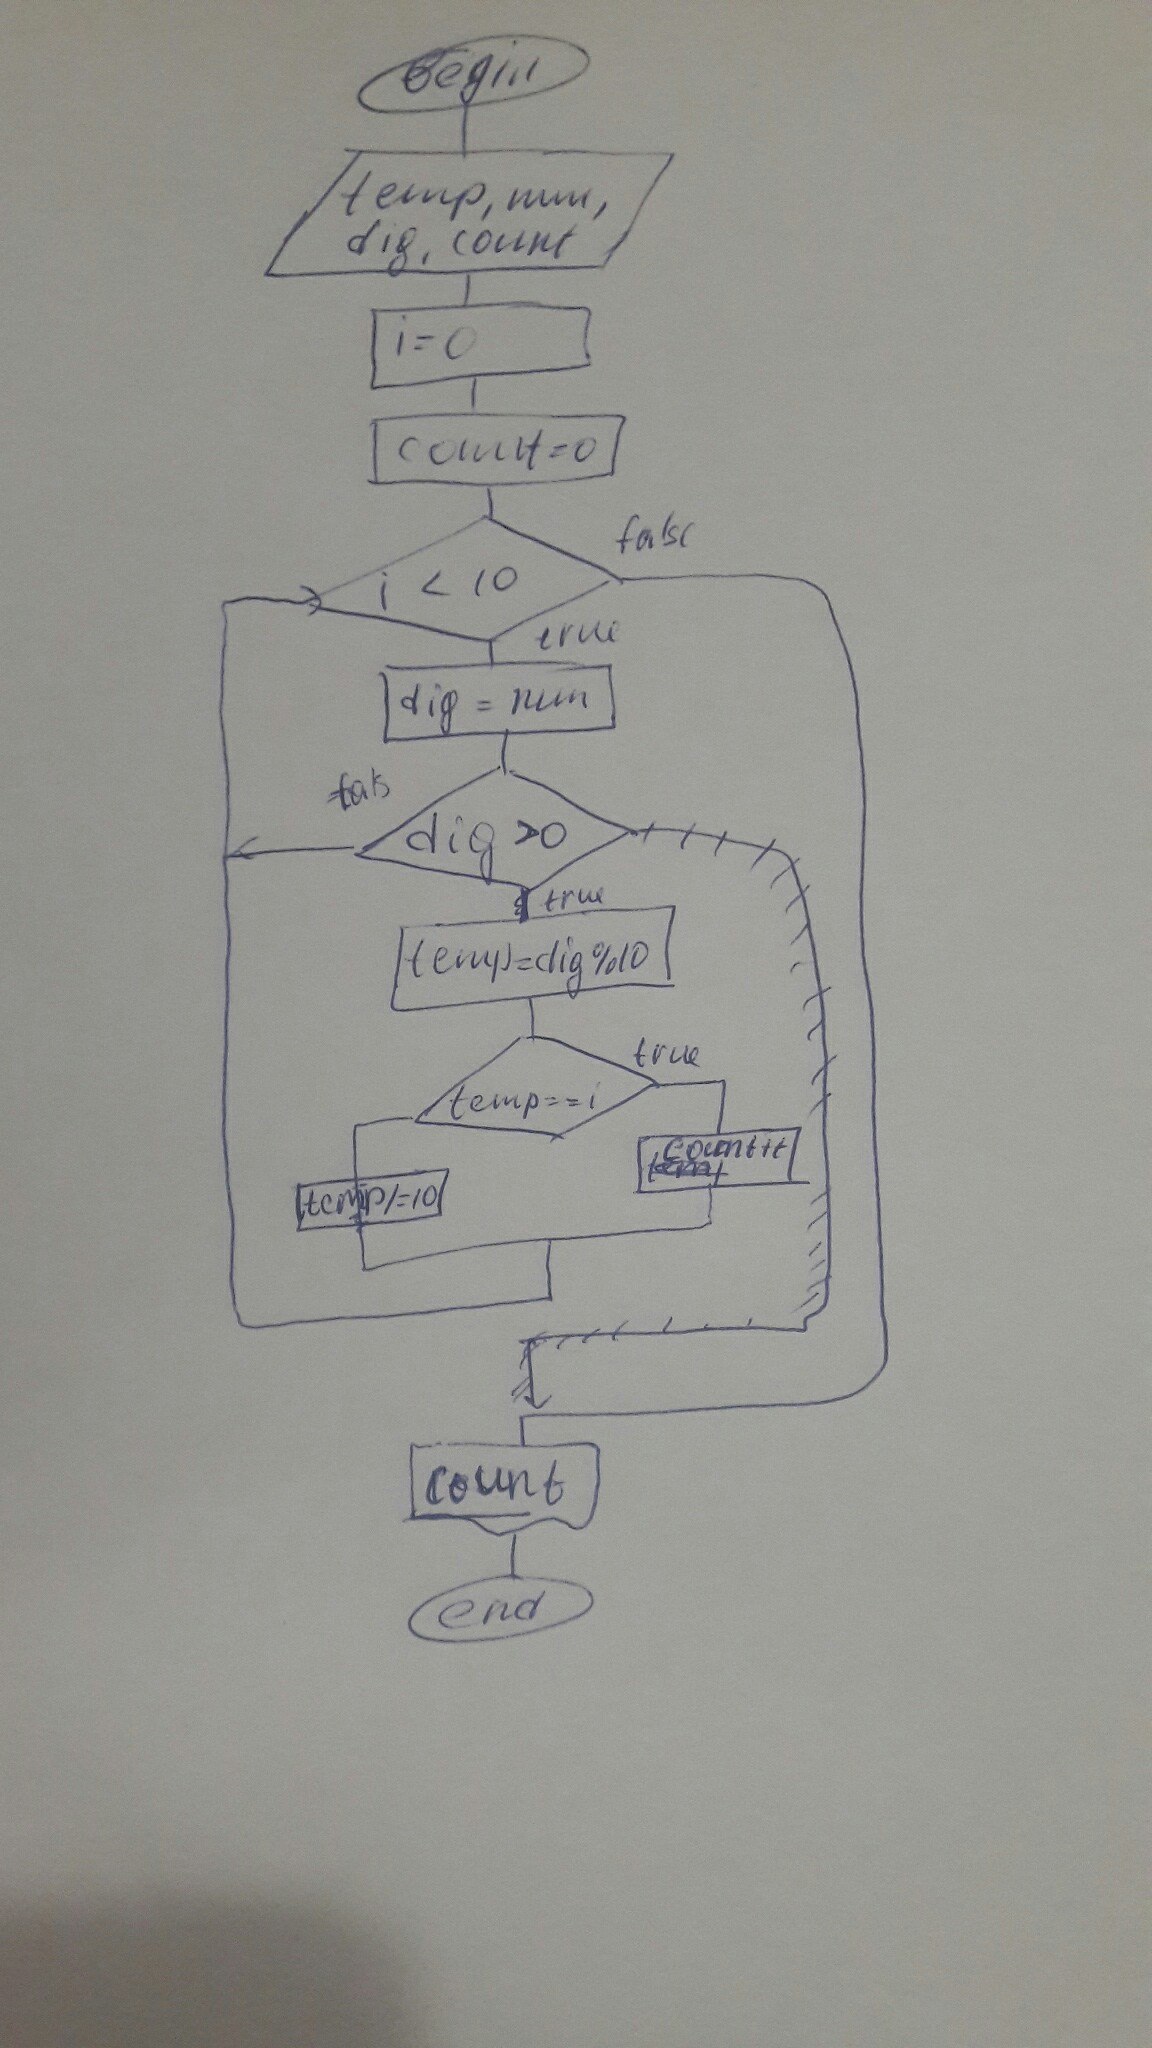 Begin
temp, num,
dig, count
i=0
count=0
i < 10
false
true
dig = num
fals
dig >0
true
temp=dig%10
true
temp==i
count++
temp/=10
count
end